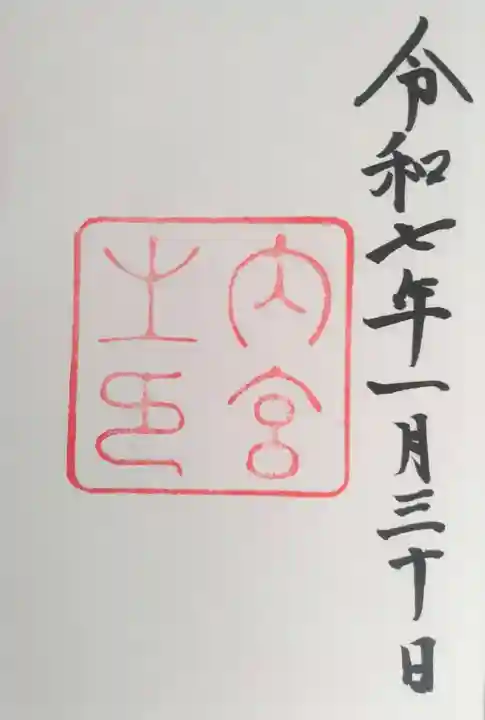 令和七年一月三十日
内宮
之印